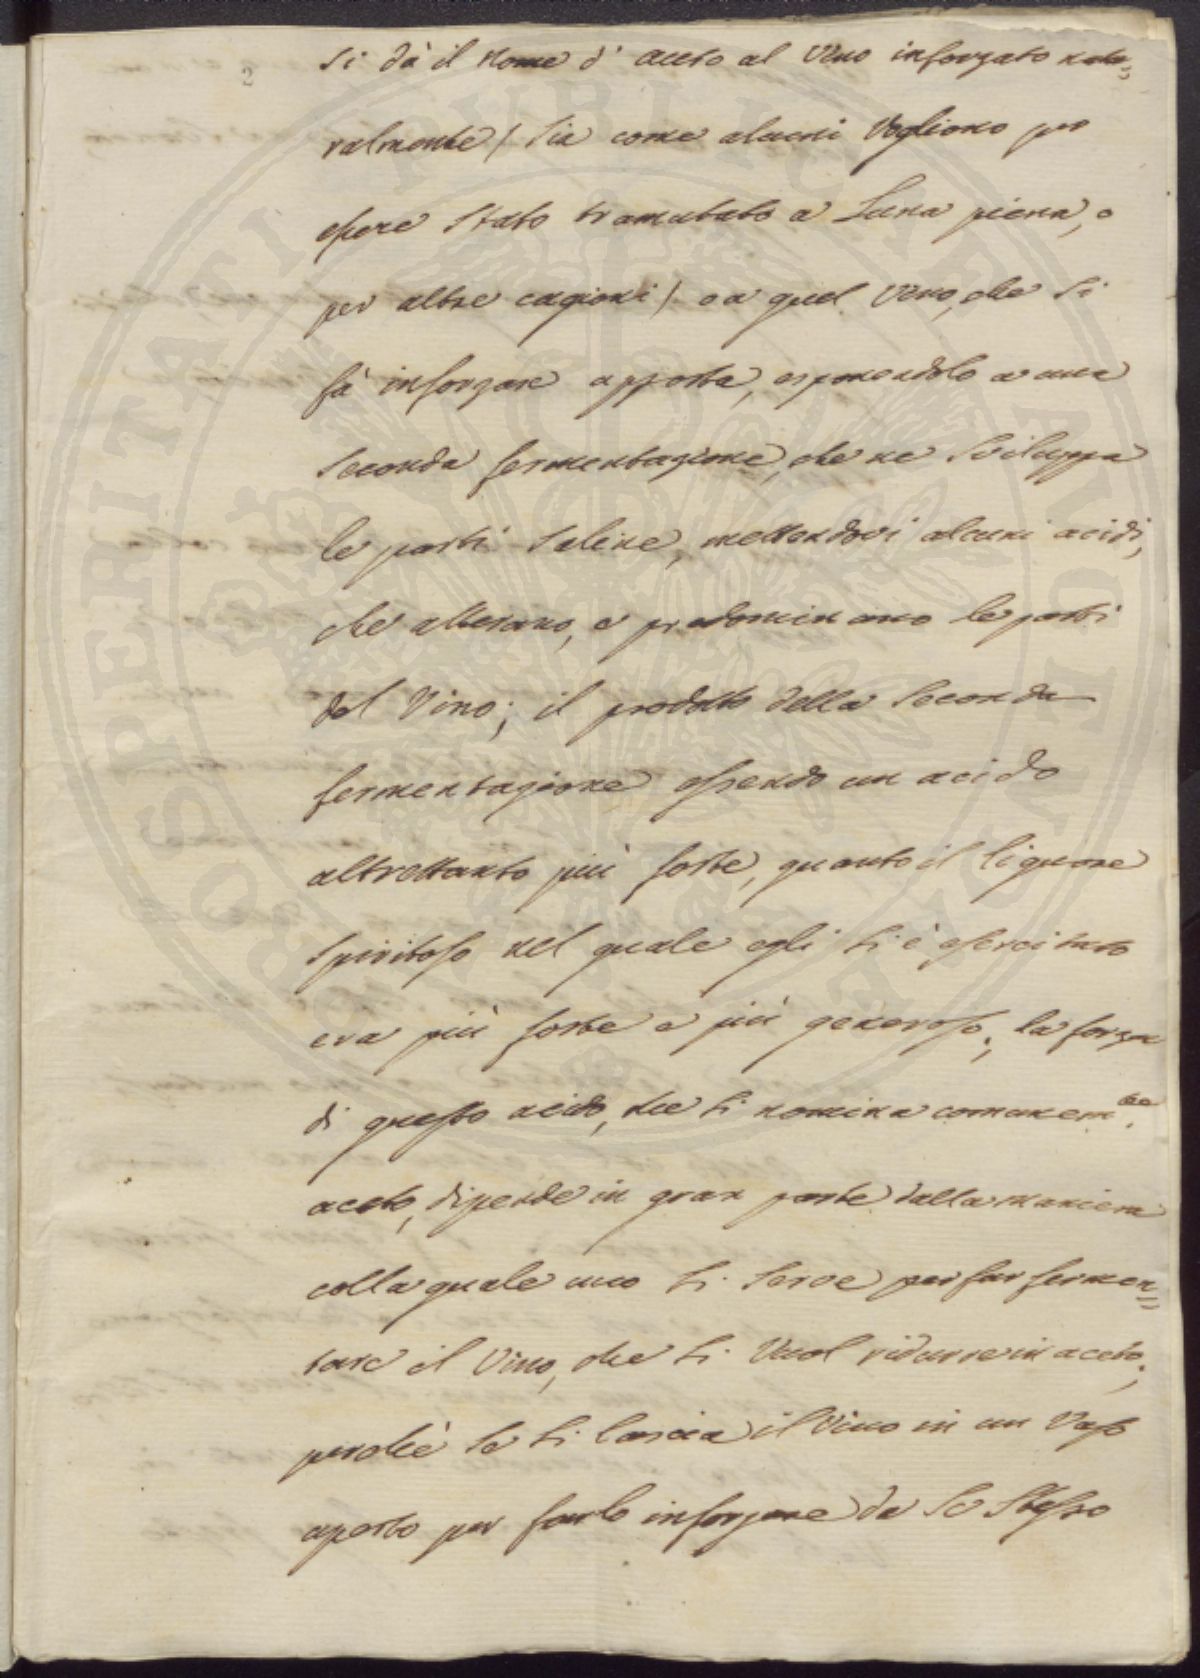 2
Si dà il Nome d' aceto al Vino inforzato natu=
ralmente / Sia come alcuni Vogliono per
essere Stato tramutato a Luna piena, o
per altre cagioni / o a quel Vino, che Si
fà inforzare apposta, esponendolo a una
Seconda fermentazione, che ne Sviluppa
le parti Saline, mettendovi alcuni acidi,
che alterano, e predominano le parti
del Vino; il prodotto della Seconda
fermentazione essendo un acido
altrettanto più forte, quanto il liquore
Spiritoso nel quale egli Si è esercitato
era più forte e più generoso; la forza
di questo acido, che Si nomina comunem.te
aceto, dipende in gran parte dalla maniera
colla quale uno Si Serve per far fermen=
tare il Vino, che Si Vuol ridurre in aceto;
perchè Se Si lascia il Vino in un Vaso
aperto per farlo inforzare da Se Stesso
PROSPERITATI PUBLICAE AUGENDAE